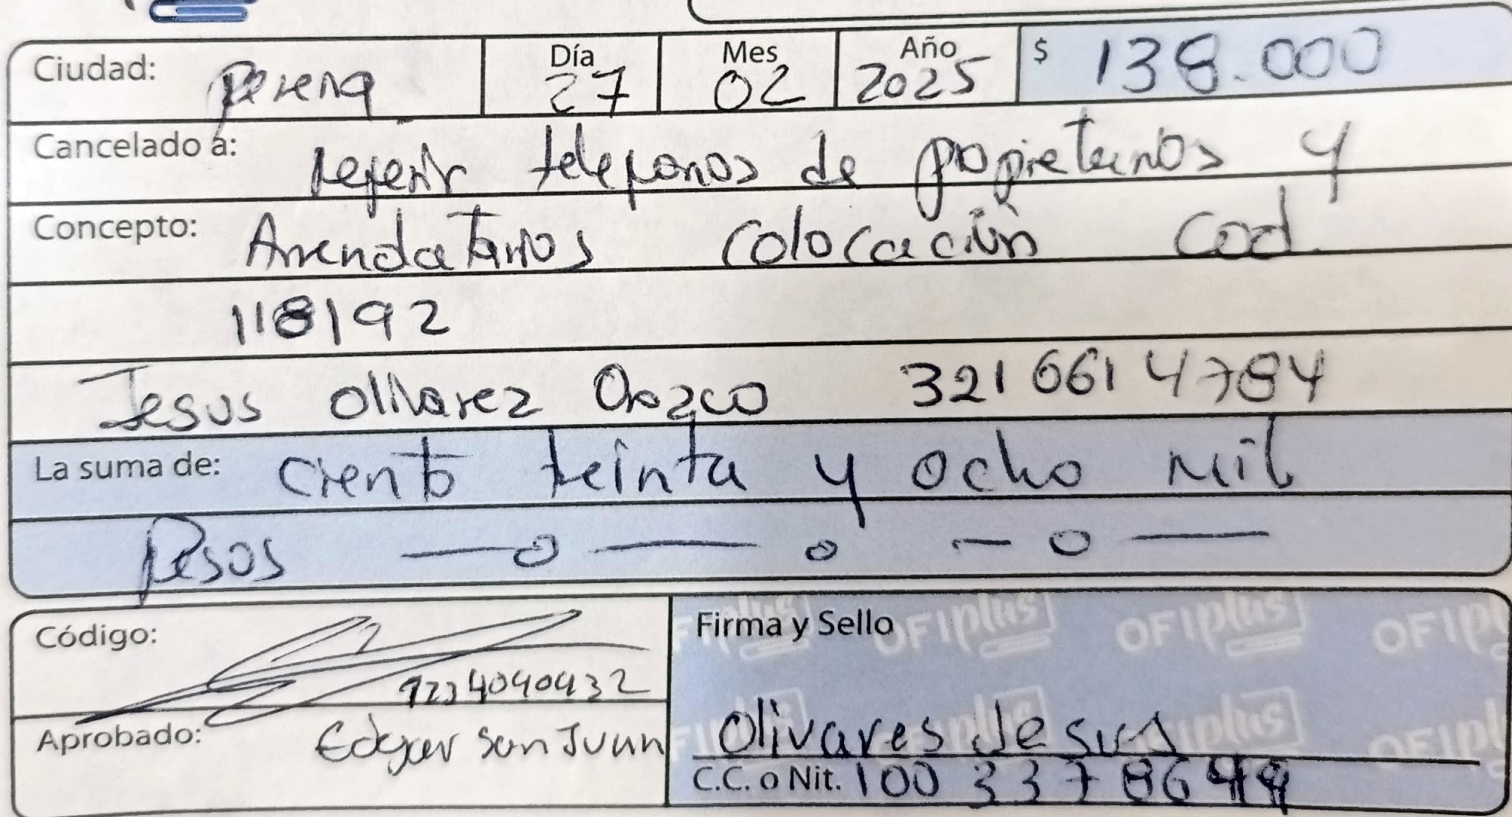 Ciudad: Pereira Día 27 Mes 02 Año 2025 $ 138.000
Cancelado a: referir telefonos de propietarios y
Concepto: Arrendatarios colocación cod.
118192
Jesus olivarez Orozco 321 661 4784
La suma de: Ciento treinta y ocho mil
Pesos
Código:
Aprobado: Edgar San Juan
Firma y Sello
OFIplus OFIplus
Olivares Jesus
C.C. o Nit. 100 337 8644